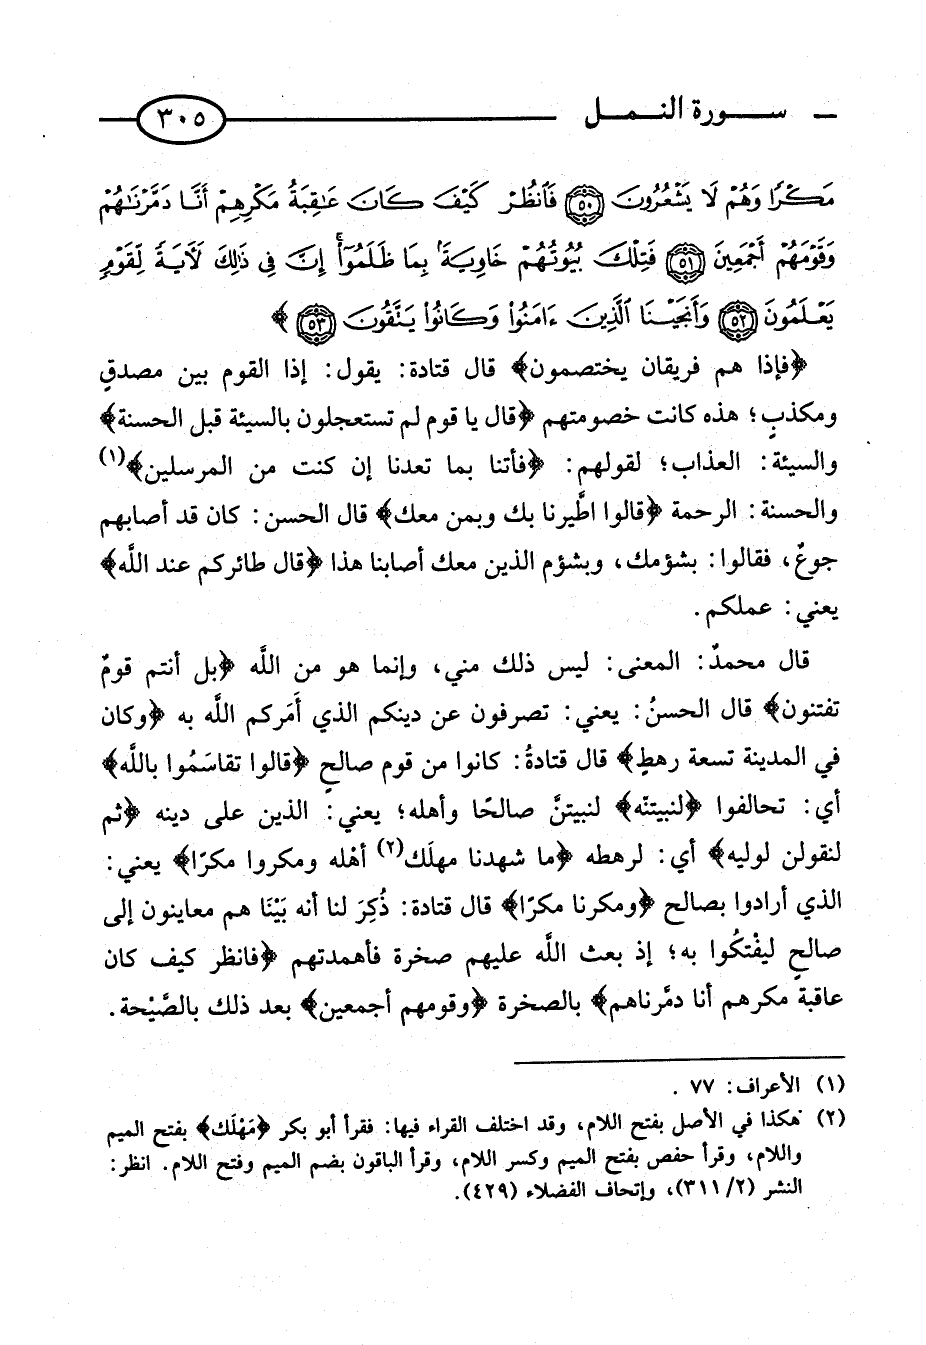 سورة النمل ٣٠٥
مَكْرًا وَهُمْ لَا يَشْعُرُونَ ﴿٥٠﴾ فَٱنظُرْ كَيْفَ كَانَ عَٰقِبَةُ مَكْرِهِمْ أَنَّا دَمَّرْنَٰهُمْ
وَقَوْمَهُمْ أَجْمَعِينَ ﴿٥١﴾ فَتِلْكَ بُيُوتُهُمْ خَاوِيَةًۢ بِمَا ظَلَمُوٓا۟ إِنَّ فِى ذَٰلِكَ لَءَايَةً لِّقَوْمٍ
يَعْلَمُونَ ﴿٥٢﴾ وَأَنجَيْنَا ٱلَّذِينَ ءَامَنُوا۟ وَكَانُوا۟ يَتَّقُونَ ﴿٥٣﴾ ﴾
﴿فإذا هم فريقان يختصمون﴾ قال قتادة: يقول: إذا القوم بين مصدقٍ
ومكذبٍ؛ هذه كانت خصومتهم ﴿قال يا قوم لم تستعجلون بالسيئة قبل الحسنة﴾
والسيئة: العذاب؛ لقولهم: ﴿فأتنا بما تعدنا إن كنت من المرسلين﴾(١)
والحسنة: الرحمة ﴿قالوا اطَّيرنا بك وبمن معك﴾ قال الحسن: كان قد أصابهم
جوعٌ، فقالوا: بشؤمك، وبشؤم الذين معك أصابنا هذا ﴿قال طائركم عند اللَّه﴾
يعني: عملكم.
قال محمدٌ: المعنى: ليس ذلك مني، وإنما هو من اللَّه ﴿بل أنتم قومٌ
تفتنون﴾ قال الحسنُ: يعني: تصرفون عن دينكم الذي أَمَركم اللَّه به ﴿وكان
في المدينة تسعة رهطٍ﴾ قال قتادةُ: كانوا من قوم صالحٍ ﴿قالوا تقاسَمُوا باللَّه﴾
أي: تحالفوا ﴿لنبيتنّه﴾ لنبيتنَّ صالحًا وأهله؛ يعني: الذين على دينه ﴿ثم
لنقولن لوليه﴾ أي: لرهطه ﴿ما شهدنا مهلَك(٢) أهْله ومكروا مكرًا﴾ يعني:
الذي أرادوا بصالح ﴿ومكرنا مكرًا﴾ قال قتادة: ذُكِرَ لنا أنه بَيْنَا هم معاينون إلى
صالحٍ ليفْتكُوا به؛ إذ بعث اللَّه عليهم صخرة فأهمدتهم ﴿فانظر كيف كان
عاقبة مكرهم أنا دمَّرناهم﴾ بالصخرة ﴿وقومهم أجمعين﴾ بعد ذلك بالصَّيْحة.
(١) الأعراف: ٧٧ .
(٢) هكذا في الأصل بفتح اللام، وقد اختلف القراء فيها: فقرأ أبو بكر ﴿مَهْلَك﴾ بفتح الميم
واللام، وقرأ حفص بفتح الميم وكسر اللام، وقرأ الباقون بضم الميم وفتح اللام. انظر:
النشر (٣١١/٢)، وإتحاف الفضلاء (٤٢٩).